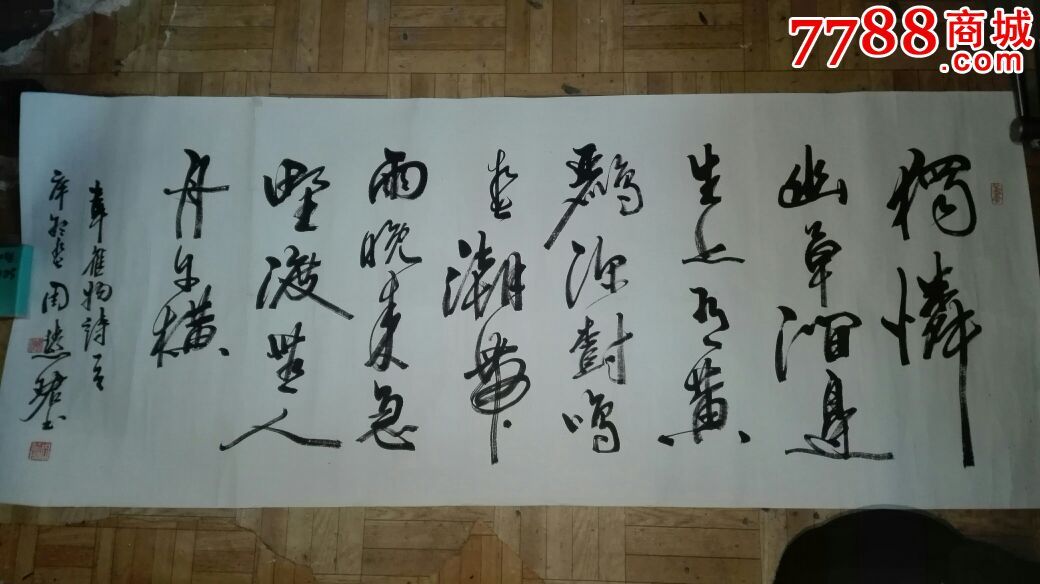 7788商城
.com
獨憐
幽草澗邊
生上有黃
鸝深樹鳴
春潮帶
雨晚來急
野渡無人
舟自橫
韋應物詩一首
辛卯春周慧珺書